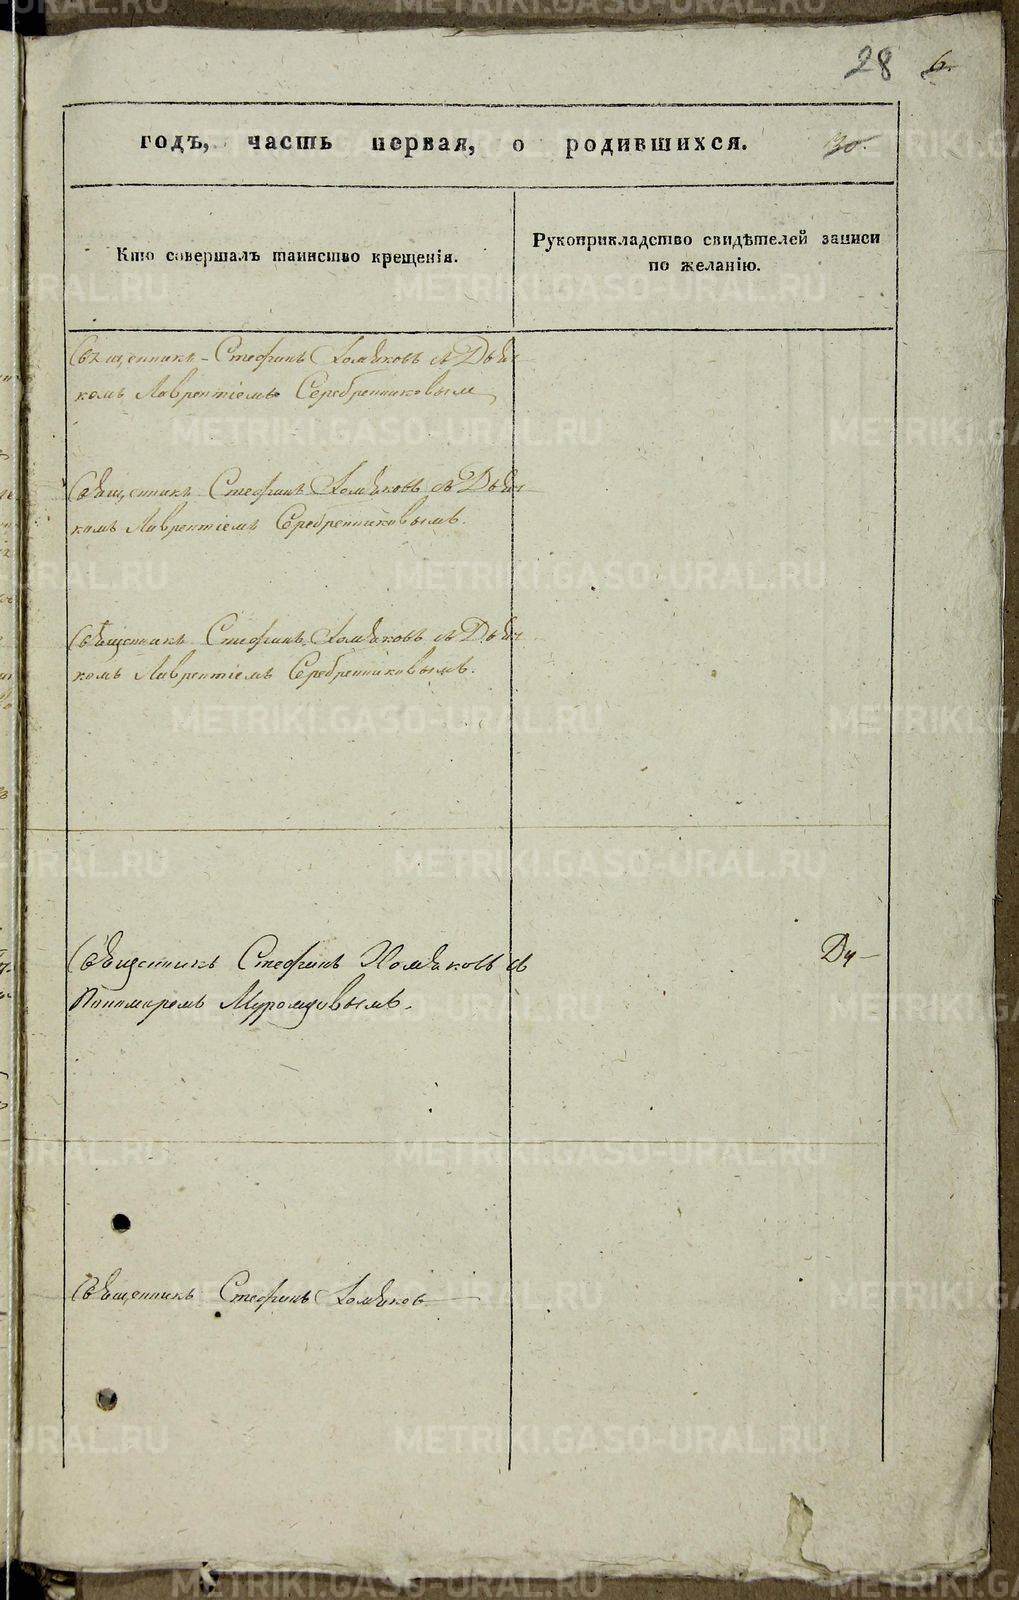 28 6.
годъ, часть первая, о родившихся. 30.
Кто совершалъ таинство крещенія.
Рукоприкладство свидѣтелей записи
по желанію.
Священникъ Стефанъ Хомяковъ съ Дьяч
комъ Лаврентіемъ Серебренниковым
Священникъ Стефанъ Хомяковъ съ Дьяч
комъ Лаврентіемъ Серебренниковымъ.
Священникъ Стефанъ Хомяковъ съ Дьяч
комъ Лаврентіемъ Серебренниковымъ.
Священникъ Стефанъ Хомяковъ съ
Пономаремъ Муромцовымъ.
Священникъ Стефанъ Хомяков
METRIKI.GASO-URAL.RU